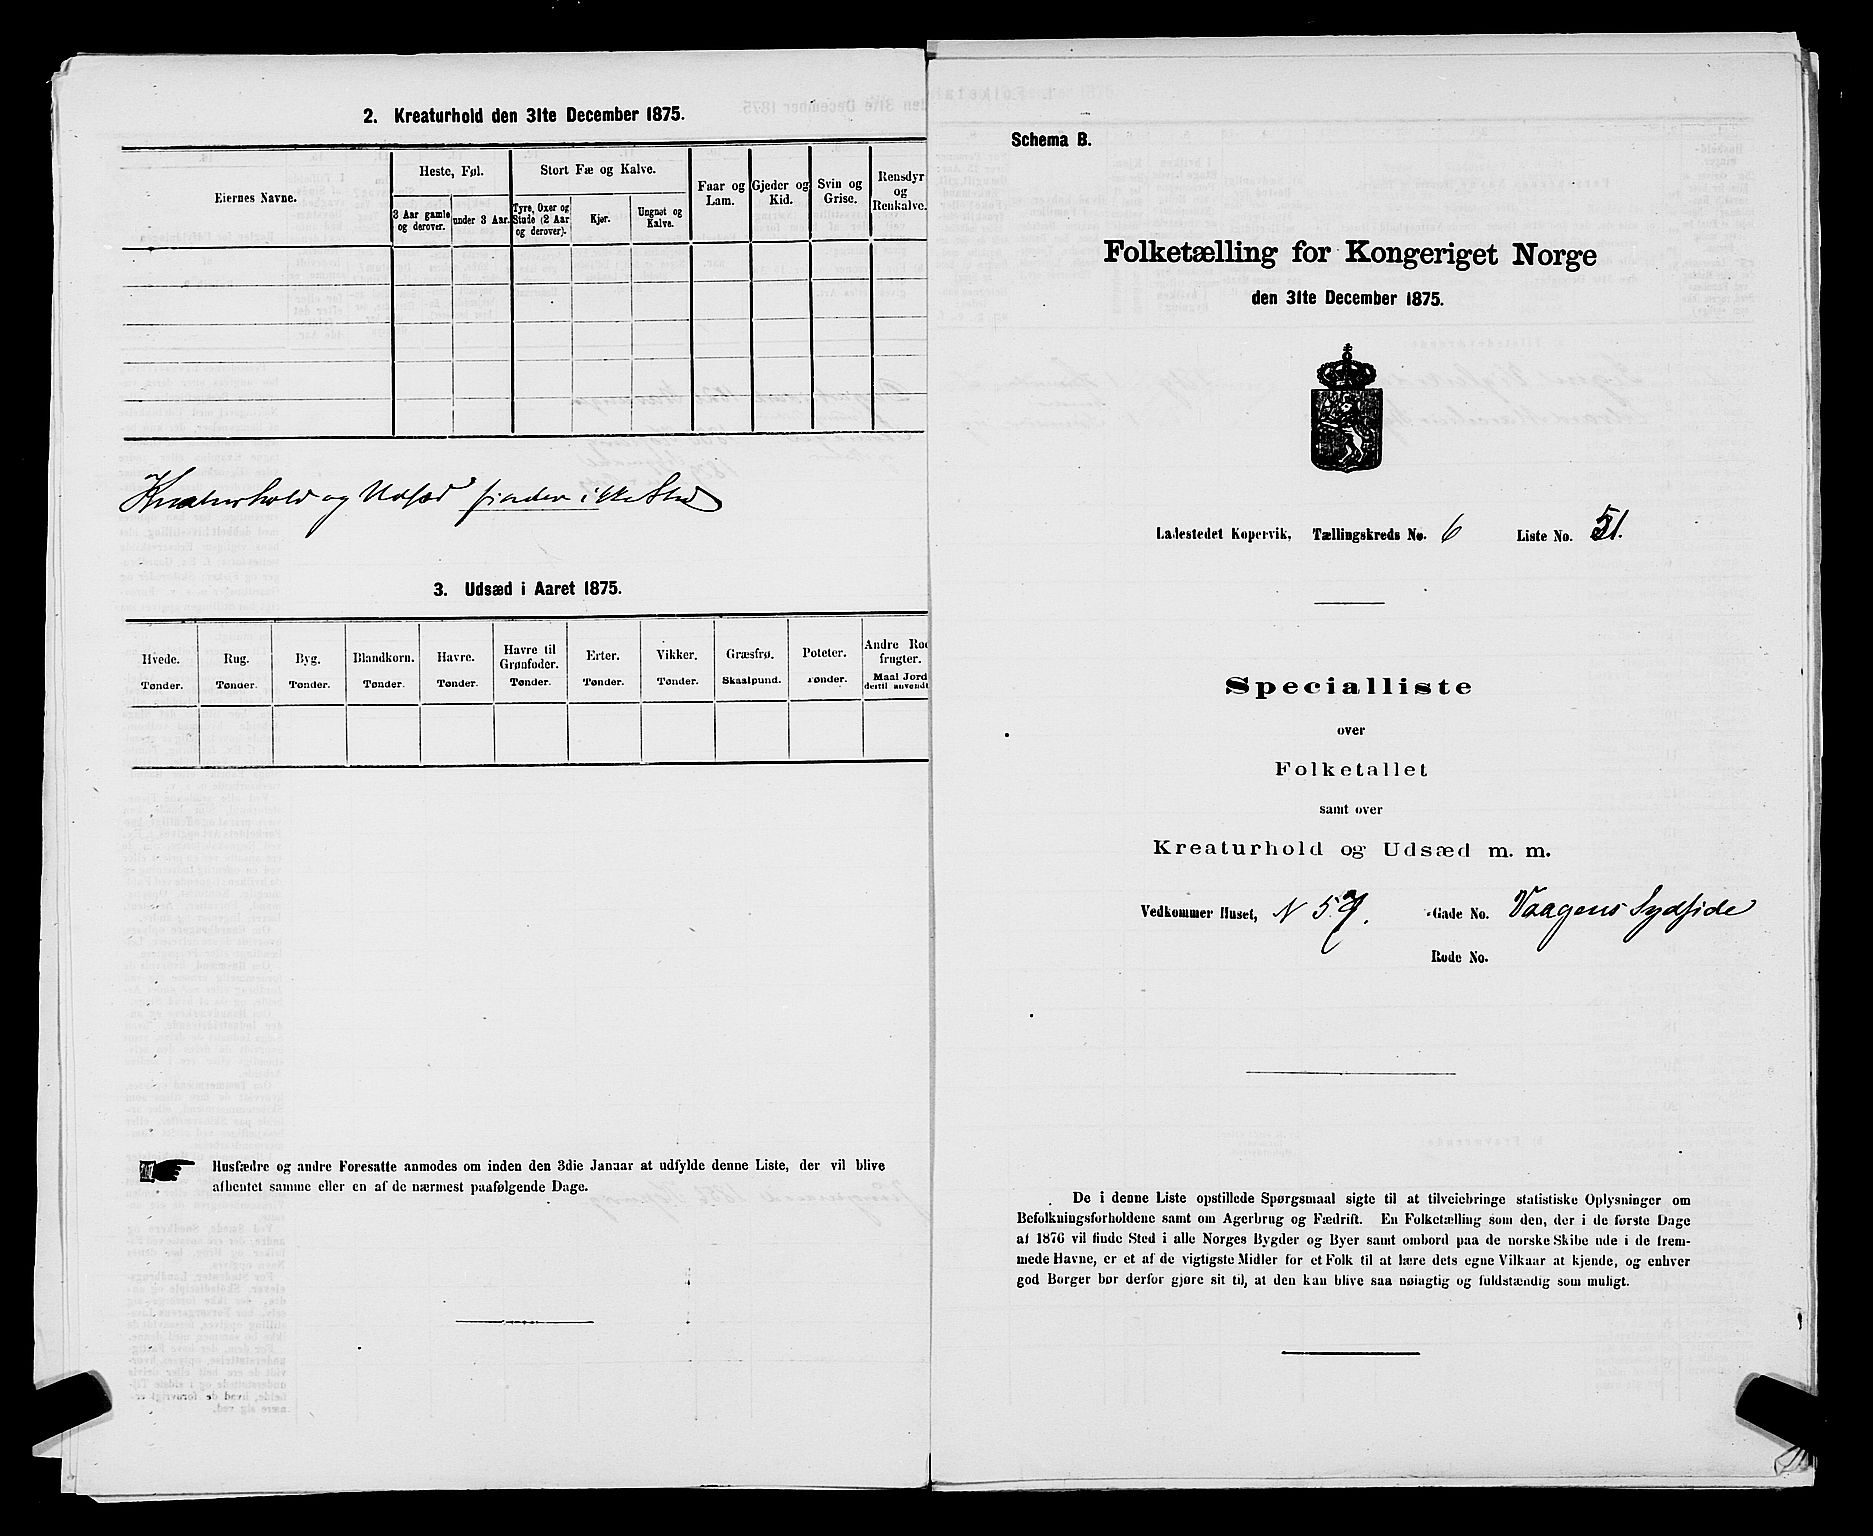 2. Kreaturhold den 31te December 1875.
Eiernes Navne.
Heste, Føl.
Stort Fæ og Kalve.
3 Aar gamle og derover.
under 3 Aar.
Tyre, Oxer og Stude (2 Aar og derover).
Kjør.
Ungnøt og Kalve.
Faar og Lam.
Gjeder og Kid.
Svin og Grise.
Rensdyr og Renkalve.
Kreaturhold og Udsæd finder ikke Sted
3. Udsæd i Aaret 1875.
Hvede. Tønder.
Rug. Tønder.
Byg. Tønder.
Blandkorn. Tønder.
Havre. Tønder.
Havre til Grønfoder. Tønder.
Erter. Tønder.
Vikker. Tønder.
Græsfrø. Skaalpund.
Poteter. Tønder.
Andre Rod
frugter.
Maal Jord
dertil anvendt
Husfædre og andre Foresatte anmodes om inden den 3die Januar at udfylde denne Liste, der vil blive
afhentet samme eller en af de nærmest paafølgende Dage.
Schema B.
Folketælling for Kongeriget Norge
den 31te December 1875.
Ladestedet Kopervik, Tællingskreds No. 6 Liste No. 51.
Specialliste
over
Folketallet
samt over
Kreaturhold og Udsæd m. m.
Vedkommer Huset, N 57. Gade No. Vaagens Sydside
Rode No.
De i denne Liste opstillede Spørgsmaal sigte til at tilveiebringe statistiske Oplysninger om
Befolkningsforholdene samt om Agerbrug og Fædrift. En Folketælling som den, der i de første Dage
af 1876 vil finde Sted i alle Norges Bygder og Byer samt ombord paa de norske Skibe ude i de frem-
mede Havne, er et af de vigtigste Midler for et Folk til at lære dets egne Vilkaar at kjende, og enhver
god Borger bør derfor gjøre sit til, at den kan blive saa nøiagtig og fuldstændig som muligt.